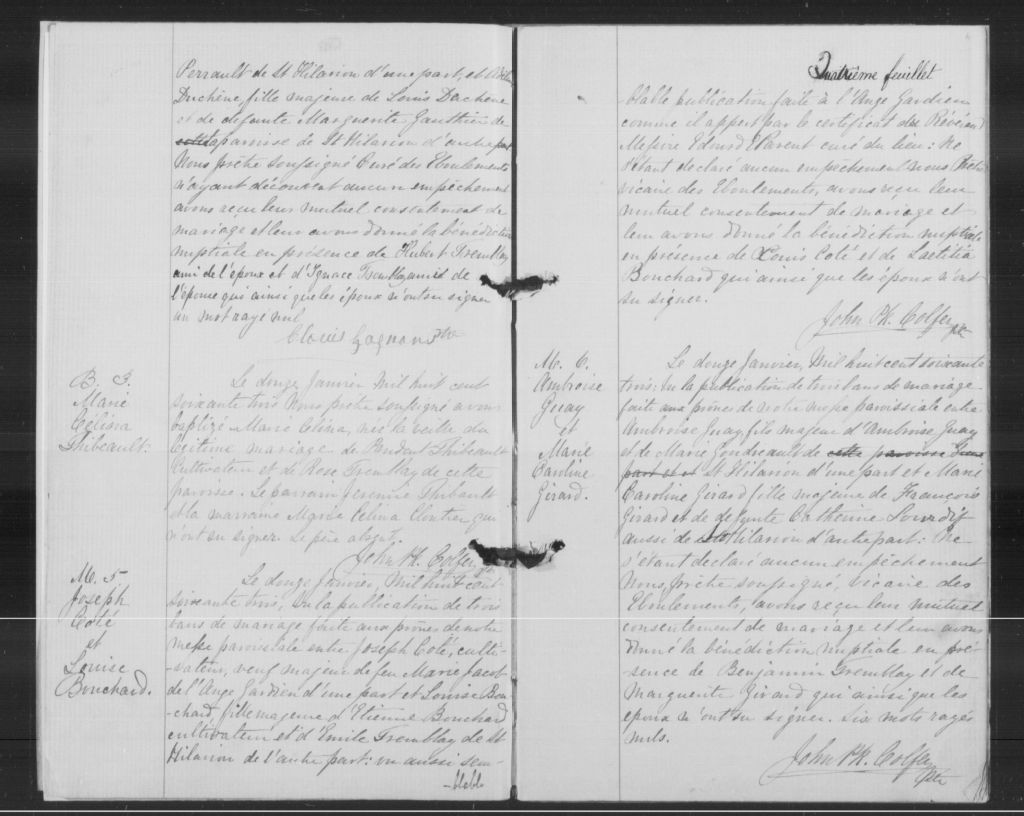 Perrault de St Hilarion d'une part, et
Duchêne fille majeure de Louis Duchêne
et de defunte Marguerite Gauthier de
paroisse de St Hilarion d'autre part
Nous prêtre soussigné Curé des Eboulements
n'ayant découvert aucun empêchement
avons reçu leur mutuel consentement de
mariage et leur avons donné la bénédiction
nuptiale en présence de Hubert Tremblay
ami de l'époux et d'Ignace Tremblay ami de
l'épouse qui ainsi que les époux n'ont su signer
un mot rayé nul
Clovis Gagnon Ptre
B. 3.
Marie
Célina
Thibeault.
Le douze Janvier Mil huit cent
soixante trois Nous prêtre soussigné avons
baptizé Marie Celina, née la veille du
légitime mariage de Prudent Thibeault
Cultivateur et de Rose Tremblay de cette
paroisse. Le parrain Jeremie Thibault
et la marraine Marie Celina Cloutier qui
n'ont su signer. Le père absent.
John H. Colfer ptre
M. 5
Joseph
Coté
et
Louise
Bouchard.
Le douze Janvier, Mil huit cent
soixante trois, Vu la publication de trois
bans de mariage faite aux prônes de notre
messe paroissiale entre Joseph Coté, culti-
-vateur, veuf majeur de feu Marie Jacob
de l'Ange Gardien d'une part et Louise Bou-
-chard, fille majeure d'Etienne Bouchard
cultivateur et d'Emile Tremblay de St
Hilarion de l'autre part: vu aussi sem-
-blable
Quatrième feuillet
-blable publication faite à l'Ange Gardien
comme il appert par le certificat du Révérend
Messire Edouard Parent curé du lieu: Ne
s'étant declaré aucun empêchement nous Prêtre
vicaire des Eboulements, avons reçu leur
mutuel consentement de mariage et
leur avons donné la bénédiction nuptiale
en présence de Louis Coté et de Laetitia
Bouchard qui ainsi que les époux n'ont
su signer.
John H. Colfer ptre
M. 6.
Ambroise
Guay
et
Marie
Caroline
Girard.
Le douze Janvier, Mil huit cent soixante
trois: Vu la publication de trois bans de mariage
faite aux prônes de notre messe paroissiale entre
Ambroise Guay fils majeur d'Ambroise Guay
et de Marie Gondreault de cette paroisse d'une
part et et St Hilarion d'une part et Marie
Caroline Girard fille majeure de François
Girard et de defunte Catherine Lourdif
aussi de St Hilarion d'autre part: Ne
s'étant declaré aucun empêchement
Nous, prêtre soussigné, vicaire des
Eboulements, avons reçu leur mutuel
consentement de mariage et leur avons
donné la bénédiction nuptiale en pré
sence de Benjamin Tremblay et de
Marguerite Girard qui ainsi que les
epoux n'ont su signer. Six mots rayés
nuls.
John H. Colfer
Ptr